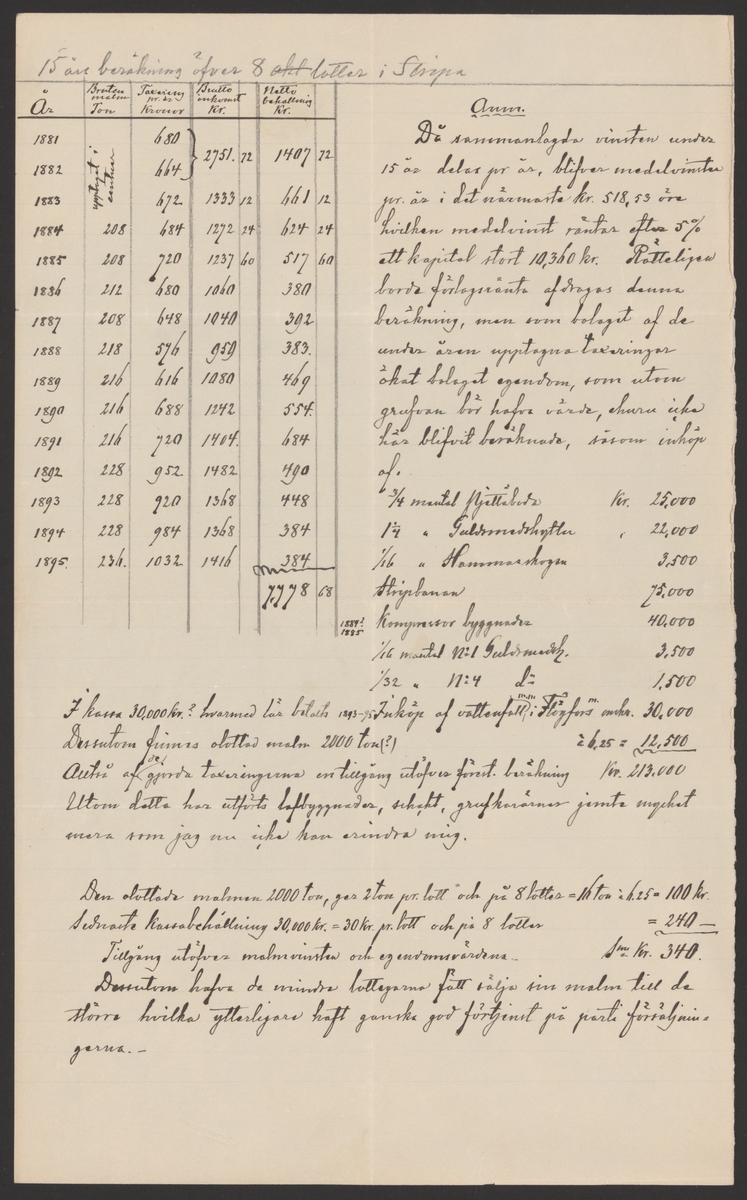 15 års beräkning öfver 8 akt lotter i Stripa
År | Bruten malm Ton | Taxering pr. år Kronor | Brutto inkomst Kr. | Netto behållning Kr.
upptaget i
1881 680
2751. 72 1407 72
1882 664
1883 672 1333 12 661 12
1884 208 684 1272 24 624 24
1885 208 720 1237 60 517 60
1886 212 680 1060 380
1887 208 648 1040 392
1888 218 576 959 383.
1889 216 616 1080 469
1890 216 688 1242 554.
1891 216 720 1404. 684
1892 228 952 1482 490
1893 228 920 1368 448
1894 228 984 1368 384
1895. 236. 1032 1416 384
7,778 68
Anm.
Då sammanlagda vinsten under
15 år delas pr år, blifver medelvinsten
pr. år i det närmaste kr. 518,53 öre
hvilken medelvinst räntar efter 5%
ett kapital stort 10,360 kr. Rätteligen
borde förlagsränta afdragas denna
beräkning, men som bolaget af de
under åren upptagna taxeringar
ökat bolaget egendom, som utom
grufvan bör hafva värde, churu icke
här blifvit beräknade, såsom inköp
af.
3/4 mantal Kr. 25,000
1 1/4 " Guldsmedshyttan " 22,000
1/16 " Hammarskogen 3,500
Stripbanan 75,000
1884? 1885 Kompressor byggnader 40,000
1/16 mantal No 1 Guldsmedsh. 3,500
1/32 " No 4 do 1,500
I kassa 30,000 kr.? hvarmed lär betalts 1893-95 Inköp af vattenfall m.m. i Flögfors m. omkr. 30,000
Dessutom finnes olottad malm 2000 ton (?) à 6,25 = 12,500
Alltså af de gjorda taxeringarna en tillgång utöfver förest. beräkning Kr. 213,000
Utom detta har utförts lafbyggnader, schakt, grufkararner jemte mycket
mera som jag nu icke kan erindra mig.
Den olottade malmen 2000 ton, ger 2 ton pr. lott och på 8 lotter = 16 ton à 6.25 = 100 kr.
Sednaste kassabehållning 30,000 kr. = 30 kr. pr. lott och på 8 lotter = 240 —
Tillgång utöfver malmvinsten och egendomsvärdena — Sma Kr. 340.
Dessutom hafva de mindre lottegarna fått sälja sin malm till de
större hvilka ytterligare haft ganska god förtjenst på parti försäljnin-
garna. —